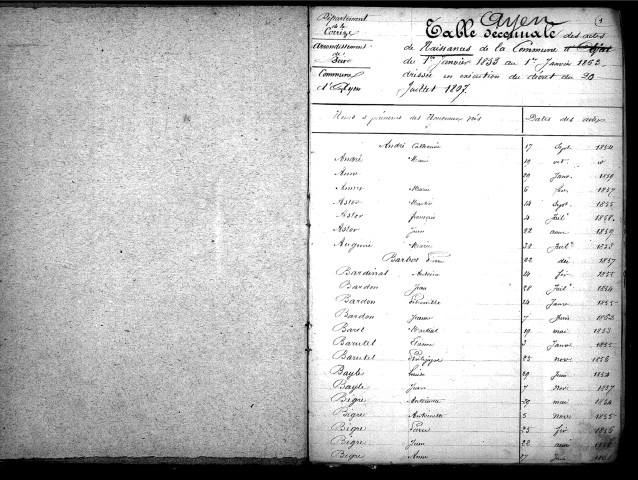 Ayen
1
Département
de la
Corrèze
Arrondissement
de
Brive
Commune
d'Ayen
Table décennale des actes
de Naissances de la Commune d'
du 1er Janvier 1853 au 1er Janvier 1863
dressée en exécution du décret du 20
Juillet 1807.
Noms et prénoms des Nouveaux nés Dates des actes
André Catherine 17 Sept. 1854
André Marie 19
Anne 29 Janv. 1859
Marie 6 fév. 1857
Astor Martin 14 Sept. 1855
Astor françois 4 Juil. 1858
Astor Jean 22 1859
Augenie Marie Juil.
Barbes 22 1857
Bardinat Antoine 24 fév 1855
Bardon Jean 28 Juil. 1854
Bardon 24 Janv. 1855
Bardon Jeanne 7 Juin 1862
Baret Martial 19 mai 1853
Barutel 2 Janv. 1855
Barutel 25 nov. 1856
Bayle Louise 29 Juin 1854
Bayle Jean 7 Nov. 1857
Bigre Antoinette 29 mai 1854
Bigre Antoinette 5 Nov. 1855
Bigre Pierre 25 fév 1856
Bigre Jean 22
Bigre Anne 27